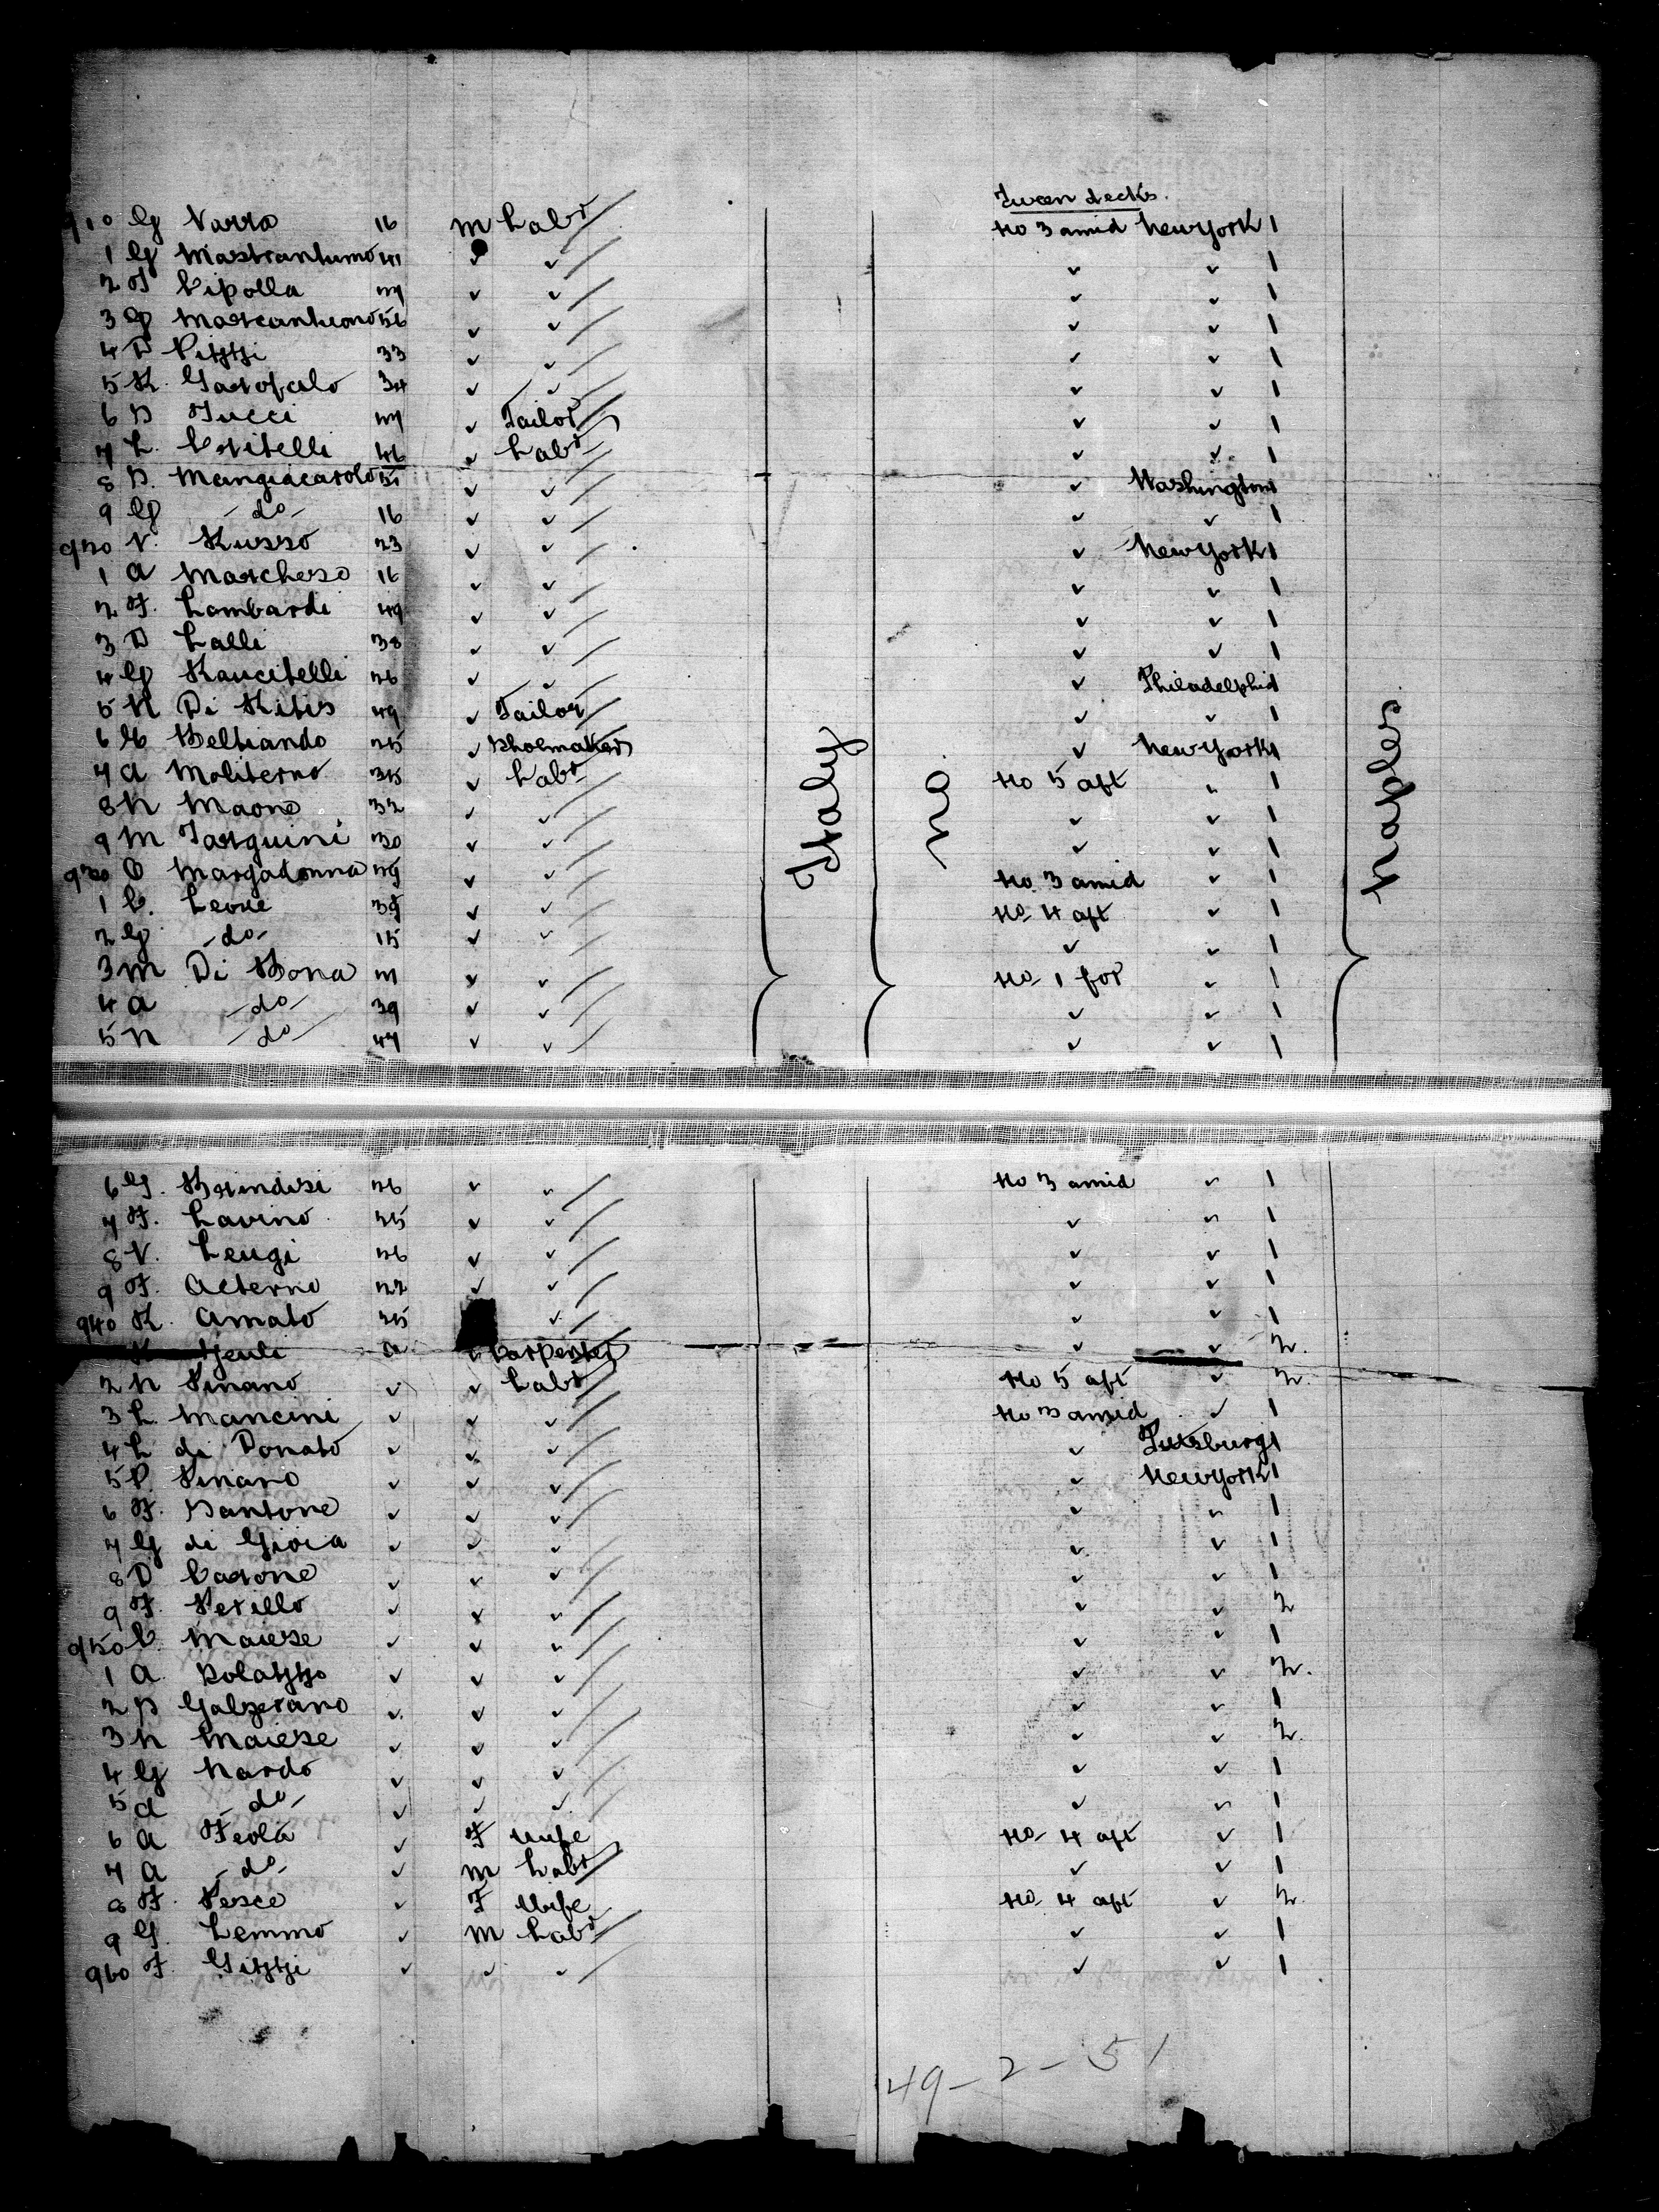 Tween decks.
910 G Varra 16 M Labr No 3 amid New York 1
1 G Mastrantuono 41 ✓ ✓ ✓ ✓ 1
2 F Cipolla 27 ✓ ✓ ✓ ✓ 1
3 G Marcantuono 56 ✓ ✓ ✓ ✓ 1
4 D Pizzi 33 ✓ ✓ ✓ ✓ 1
5 R. Garofalo 34 ✓ ✓ ✓ ✓ 1
6 D Tucci 27 ✓ Tailor ✓ ✓ 1
7 L. Critelli 46 ✓ Labr ✓ ✓ 1
8 D. Mangiacarolo 51 ✓ ✓ ✓ Washington 1
9 G -do- 16 ✓ ✓ ✓ ✓ 1
920 V. Russo 23 ✓ ✓ ✓ New York 1
1 A Marchese 16 ✓ ✓ ✓ ✓ 1
2 F. Lombardi 49 ✓ ✓ ✓ ✓ 1
3 D Lalli 38 ✓ ✓ ✓ ✓ 1
4 G Rancitelli 26 ✓ ✓ ✓ Philadelphia 1
5 N Di Ritis 49 ✓ Tailor ✓ ✓ 1
6 Beltrando 25 ✓ Shoemaker ✓ New York 1
7 A Moliterno 35 ✓ Labr No 5 aft ✓ 1
8 N Maone 32 ✓ ✓ ✓ ✓ 1
9 M Tarquini 30 ✓ ✓ ✓ ✓ 1
930 C Margadonna 29 ✓ ✓ No 3 amid ✓ 1
1 C. Leone 39 ✓ ✓ No 4 aft ✓ 1
2 G -do- 15 ✓ ✓ ✓ ✓ 1
3 M Di Bona ✓ ✓ No 1 for ✓ 1
4 A -do- 39 ✓ ✓ ✓ ✓ 1
5 N -do- 47 ✓ ✓ ✓ ✓ 1
Italy
no
Naples
6 G. Brindisi 26 ✓ ✓ No 3 amid ✓ 1
7 F. Lavino 25 ✓ ✓ ✓ ✓ 1
8 V. Leugi 26 ✓ ✓ ✓ ✓ 1
9 F. Alterno 22 ✓ ✓ ✓ ✓ 1
940 R. Amato 25 ✓ ✓ ✓ 1
a ✓ Carpenter ✓ ✓ 2.
2 N Pinano ✓ ✓ Labr No 5 aft ✓ 2.
3 L. Mancini ✓ ✓ ✓ No 3 amid ✓ 1
4 L di Donato ✓ ✓ ✓ ✓ 1
5 P. Pinano ✓ ✓ ✓ ✓ New York 1
6 F. Santone ✓ ✓ ✓ ✓ ✓ 1
7 G di Gioia ✓ ✓ ✓ ✓ ✓ 1
8 D Carone ✓ ✓ ✓ ✓ ✓ 1
9 F. Perillo ✓ ✓ ✓ ✓ ✓ 2
950 C. Maiese ✓ ✓ ✓ ✓ ✓ 1
1 A. Polazzo ✓ ✓ ✓ ✓ ✓ 2.
2 D Galzerano ✓ ✓ ✓ ✓ ✓ 1
3 N Maiese ✓ ✓ ✓ ✓ ✓ 2.
4 G Nardo ✓ ✓ ✓ ✓ ✓ 1
5 A -do- ✓ ✓ ✓ ✓ ✓ 1
6 A Feola ✓ F Wife No 4 aft ✓ 1
7 A -do- ✓ M Labr ✓ ✓ 1
8 F. Pesce ✓ F Wife No 4 aft ✓ 2.
9 G. Lemmo ✓ M Labr ✓ ✓ 1
960 F. Gizzi ✓ ✓ ✓ ✓ ✓ 1
49-2-51